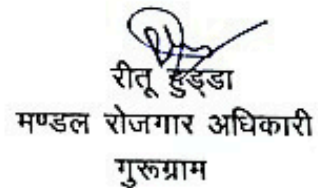 रीतू हुड्डा
मण्डल रोजगार अधिकारी
गुरूग्राम